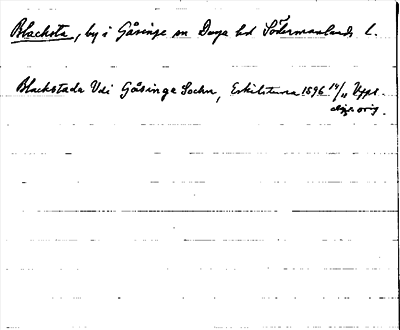 Blacksta, by i Gåsinge sn Daga hd Södermanlands l.
Blackstada Udi Gåsinge Sochn, Eskilstuna 1596 14/11 Uppl.
dipl. orig.